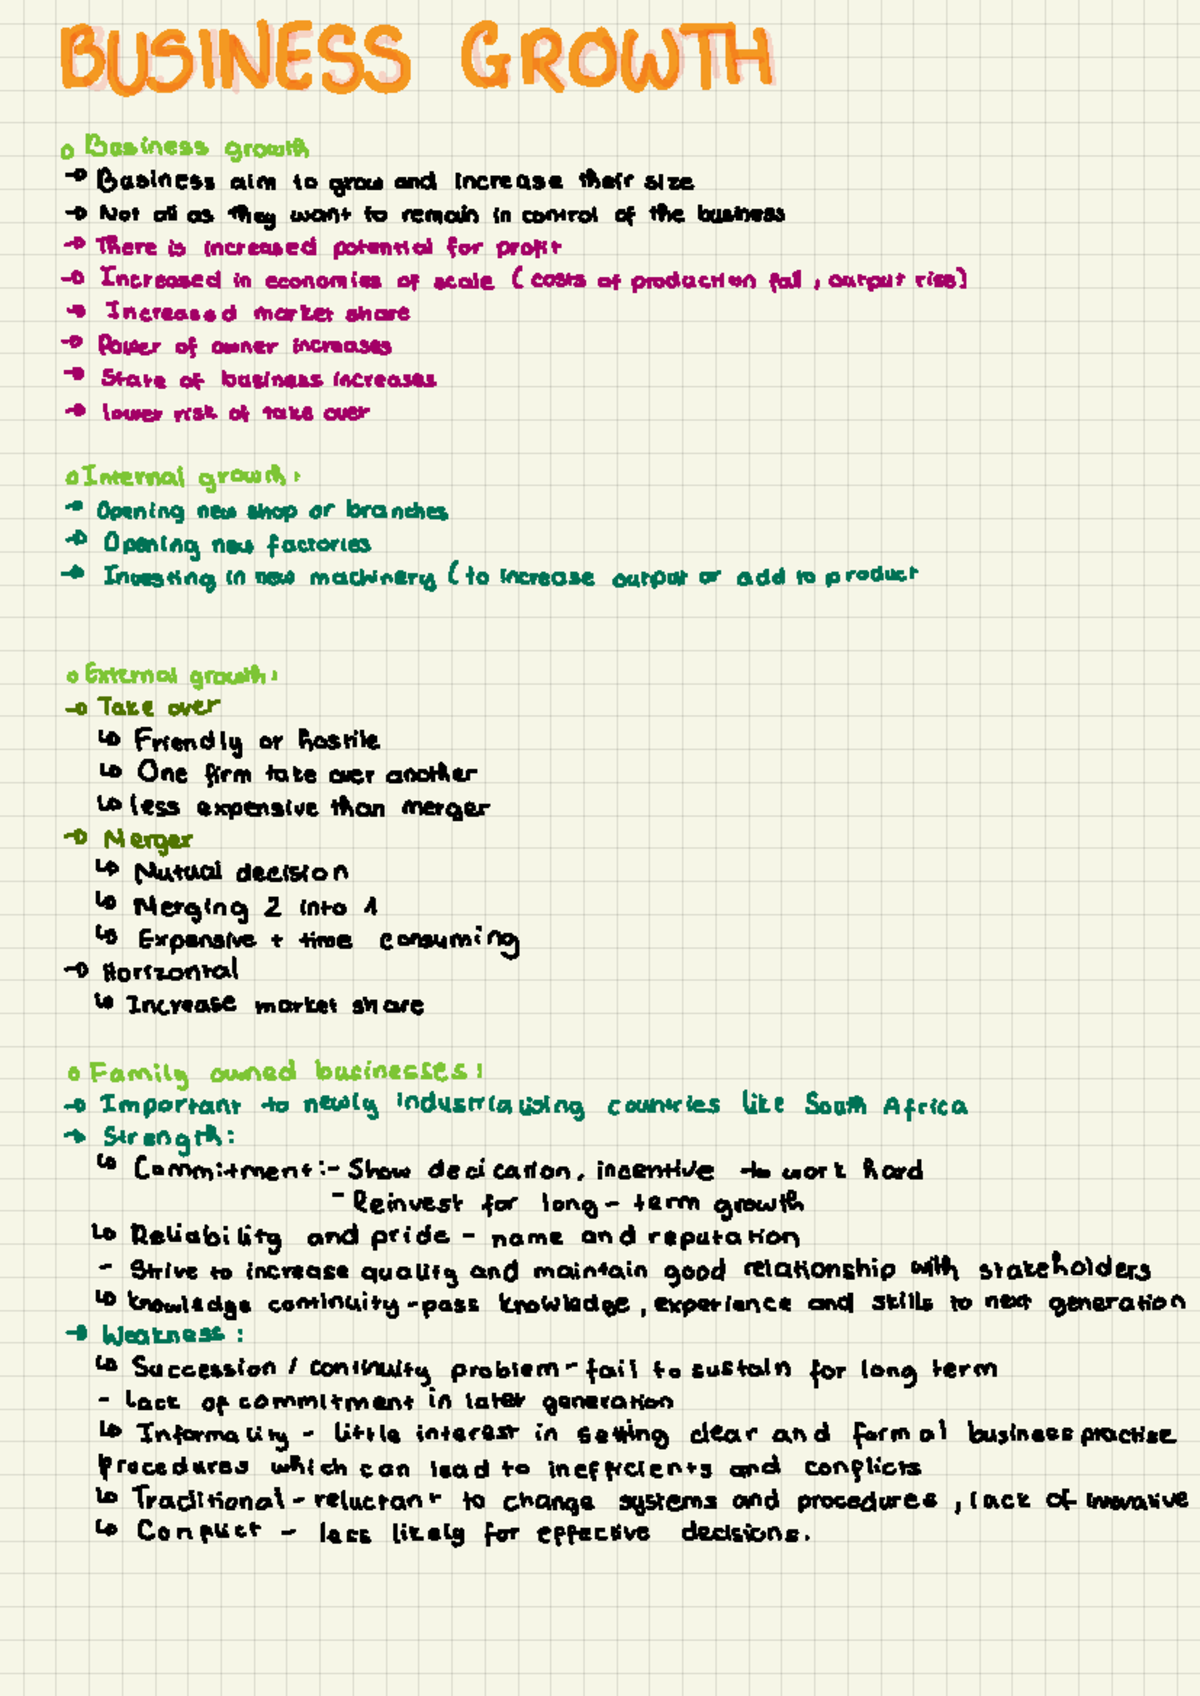 BUSINESS GROWTH
Business growth
Business aim to grow and increase their size
Not all as they want to remain in control of the business
There is increased potential for profit
Increased in economies of scale (costs of production fall, output rise)
Increased market share
Power of owner increases
State of business increases
lower risk of take over
Internal growth:
Opening new shop or branches
Opening new factories
Investing in new machinery (to increase output or add to product
External growth:
Take over
Friendly or hostile
One firm take over another
less expensive than merger
Merger
Mutual decision
Merging 2 into 1
Expensive + time consuming
Horizontal
Increase market share
Family owned businesses:
Important to newly industrialising countries like South Africa
Strength:
Commitment:- Show decication, incentive to work hard
- Reinvest for long-term growth
Reliability and pride - name and reputation
- Strive to increase quality and maintain good relationship with stakeholders
knowledge continuity - pass knowledge, experience and skills to next generation
Weakness:
Succession / continuity problem - fail to sustain for long term
- lack of commitment in later generation
Informality - little interest in setting clear and formal business practise
procedures which can lead to inefficients and conflicts
Traditional - reluctant to change systems and procedures, lack of innovative
Conflict - less likely for effective decisions.